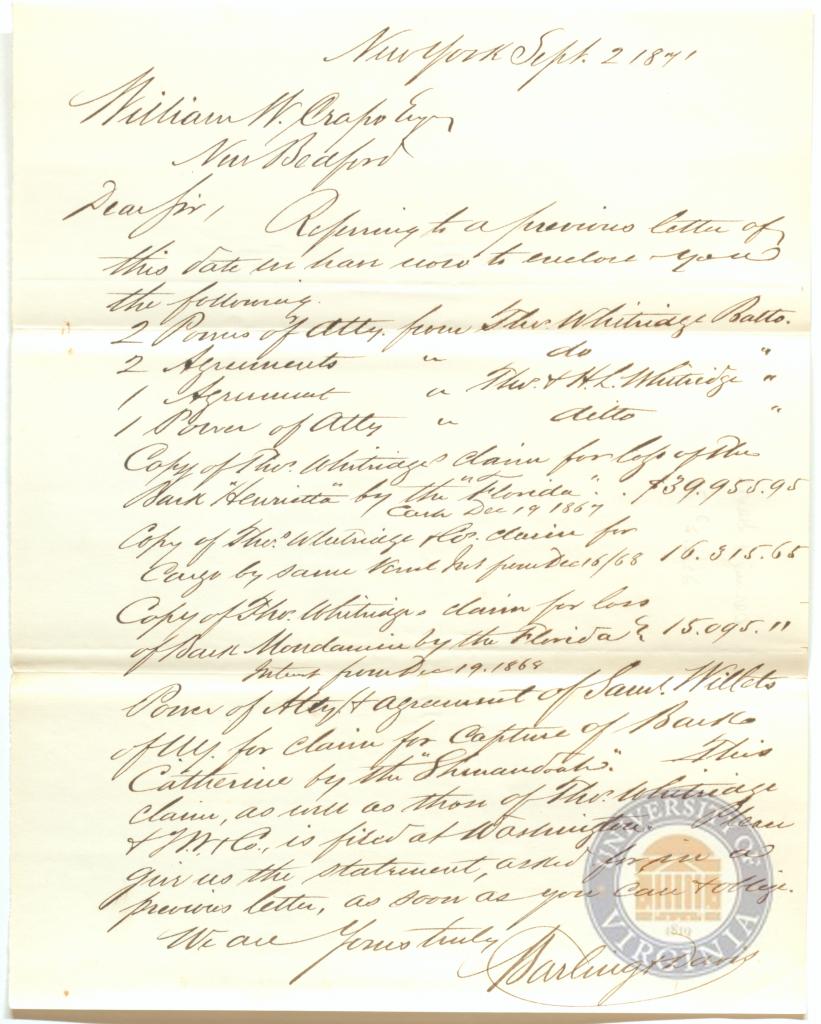 New York Sept. 2 1871
William W. Crapo Esq
New Bedford
Dear Sir, Referring to a previous letter of
this date we have now to enclose you
the following.
2 Powers of Atty. from Thos. Whitridge Balto.
2 Agreements " do "
1 Agreement " Thos. & H. L. Whitridge "
1 Power of Atty " ditto "
Copy of Thos. Whitridges claim for loss of the
Bark "Henrietta" by the "Florida". . $39,955.95
Dec 19 1864
Copy of Thos. Whitridge & Cos. claim for
Cargo by same Vessel Int from Dec 16/68 16.315.65
Copy of Thos. Whitridges claim for loss
of Bark Mondamin by the Florida 15.095.11
Interest from Dec 19. 1868
Power of Atty & agreement of Saml. Willets
of NY. for claim for Capture of Bark
Catherine by the "Shenandoah". This
claim, as well as those of Thos. Whitridge
& T.W. & Co., is filed at Washington. Please
give us the statement, asked for in a
previous letter, as soon as you can & oblige.
We are Yours truly
Darling & Davis
UNIVERSITY OF VIRGINIA
1819